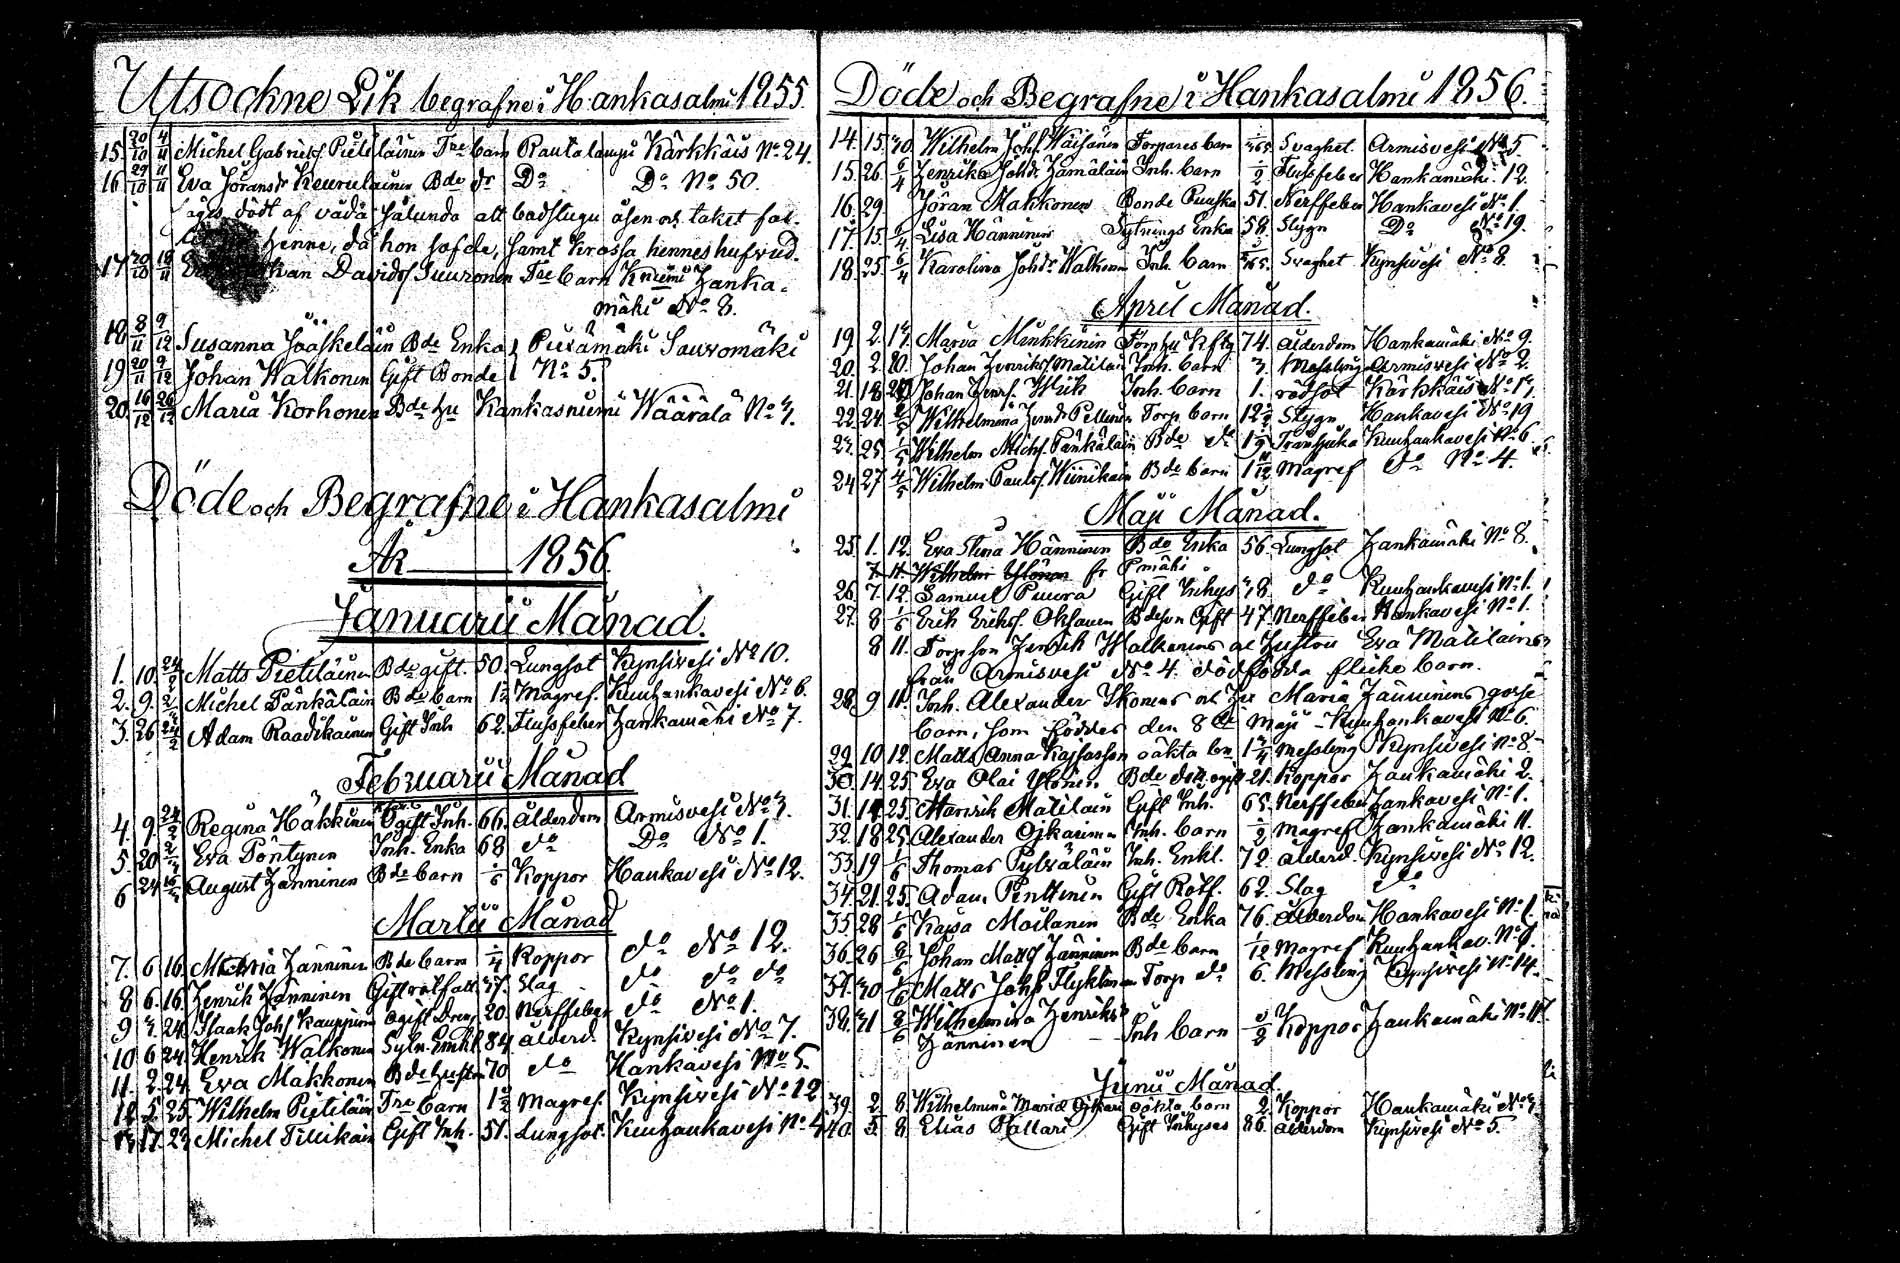 Utsockne Lik begrafne i Hankasalmi 1855.
15. 20/10 4/11 Michel Gabrielss. Pieteläinen Tre barn Rautalampi Kärkkäis No 24.
16 29/10 11/11 Eva Jöransdr Keurulainen Bde dr Do Do No 50.
säges dödt af våda sålunda att badstugu åsen och taket fal-
henne, då hon sofde, samt krossa hennes hufvud.
17 20/10 18/11 Davids. Suuronen Tre barn Hanka-
mäki No 8.
18 8/11 9/12 Susanna Jääskeläin Bde Enka Sauromäki
19 20/11 9/12 Johan Walkonen Gift Bonde No 5.
20. 16/12 26/12 Maria Korhonen Bde hu Kankasniemi Wäärälä No 7.
Döde och Begrafne i Hankasalmi
År 1856.
Januarii Månad.
1. 10. Matts Pieteläinen Bde gift. 50. Lungsot Kynsivesi No 10.
2. 9. Michel Pänkäläin Bde barn 1½ Magref. Kuuhankavesi No 6.
3. 26 Adam Raadikainen Gift Inh 62. Flussfeber Hankamäki No 7.
Februarii Månad
4. 9. Regina Häkkinen Ogift Inh. 66. ålderdom Armisvesi No 3.
5. 20 Eva Pöntynen Inh. Enka 68 do Do No 1.
6 24 August Hänninen Bde barn Koppor Hankavesi No 12.
Martii Månad
7. 6 16. Maria Hänninen Bde barn ¼ Koppor do No 12.
8 6. 16. Henrik Hänninen Gift Slag do do do
9 24. Isaak Johs. Kauppinen ogift Dreng 20. Nerffeber do No 1.
10 6 24. Henrik Walkonen Sytn. Enkl 84 ålderd. Kynsivesi No 7.
11. 2. 24. Eva Makkonen Bde hustru 70 do Hankavesi No 5.
12 5. 25. Wilhelm Pieteläin Tre barn 1½ Magref. Kynsivesi No 12
13 17. 23 Michel Tiitikain Gift Inh. 51. Lungsot. Kuuhankavesi No 4
Döde och Begrafne i Hankasalmi 1856.
14. 15. 30. Wilhelm Johs. Waisänen Torpares barn Svaghet Armisvesi No 5.
15. 26. 6/4 Henrika Johsdr Hämäläin Inh. barn ½ Flussfeber Hankamäki. 12.
16. 29. Jöran Makkonen Bonde 51. Nerffeber Hankavesi No 1.
17. 15. 6/4 Lisa Hänninen Sytnings Enka 58. Stygn Do No 19.
18. 25. 6/4 Karolina Johsdr Walkonen Inh. barn Svaghet Kynsivesi No 8.
April Månad.
19 2. 13. Maria Minkkinen 74. ålderdom Hankamäki No 9.
20. 2. 20. Johan Henrikss. Matilain Inh. barn 3. Messling Armisvesi No 2.
21. 18 Johan Henrs. Inh. barn 1. rödsot Kärkkäis No 17.
22. 24. Wilhelmina Henrdr Pellinen Torp. barn Stygn Hankavesi No 19
25. 1/5 Wilhelm Michs. Pänkäläin Bde do Kuuhankavesi No 6
24 27 4/5 Wilhelm Pauls. Wiinikain Bde barn Magref do No 4.
Maji Månad.
25. 1. 12. Eva Stina Hänninen Bde Enka 56. Lungsot Hankamäki No 8.
7. 11. Wilhelm Ylönen fr Pmäki
26. 7. 12. Samuel Puura Gift Inhys do Kuuhankavesi No 1.
27. 8 1/6 Erik Eriks. Oksanen Bdeson Gift 47. Nerffeber Hankavesi No 1.
8 11. Torpson Henrik Walkonens och Hustru Eva Matilainens
från Armisvesi No 4. dödfödda flicke barn.
28. 9 11. Inh. Alexander Ikonens och Hu Maria Hänninens gosse
barn, som föddes den 8de Maji - Kuuhankavesi No 6.
29 10 12. Matts Anna Kajsasson oäkta bn Messling Kynsivesi No 8.
30. 14. 25. Eva Olai Ylönen Bde dotr ogift 21. Koppor Hankamäki 2.
31. 14 25. Henrik Matilain Gift Inh. 65. Nerffeber Hankavesi No 1.
32. 18 25. Alexander Ojkarinen Inh. barn ½ Magref Hankamäki 11.
33. 19 1/6 Thomas Pylväläin Inh. Enkl. 72. ålderd. Kynsivesi No 12.
34. 21. 25. Adam Penttinen Gift Rotf. 62. Slag do
35. 28 1/6 Kajsa Moilanen Bde Enka 76. ålderdom Hankavesi No 1.
36. 26 8/6 Johan Matts. Hänninen Bde barn 1/12 Magref Kuuhankav. No 9.
37. 30 1/6 Matts Johs. Flyktman Torp do 6. Messling Kynsivesi No 14.
38. 31 8/6 Wilhelmina Henriks
Hänninen Inh barn Koppor Hankamäki No 11.
Junii Månad.
39. 2. 8. Wilhelmina Maria Ojkari oäkta barn 2. Koppor Hankamäki No
40. 5. 8. Elias Pallari Gift Inhyses 86. ålderdom Kynsivesi No 5.